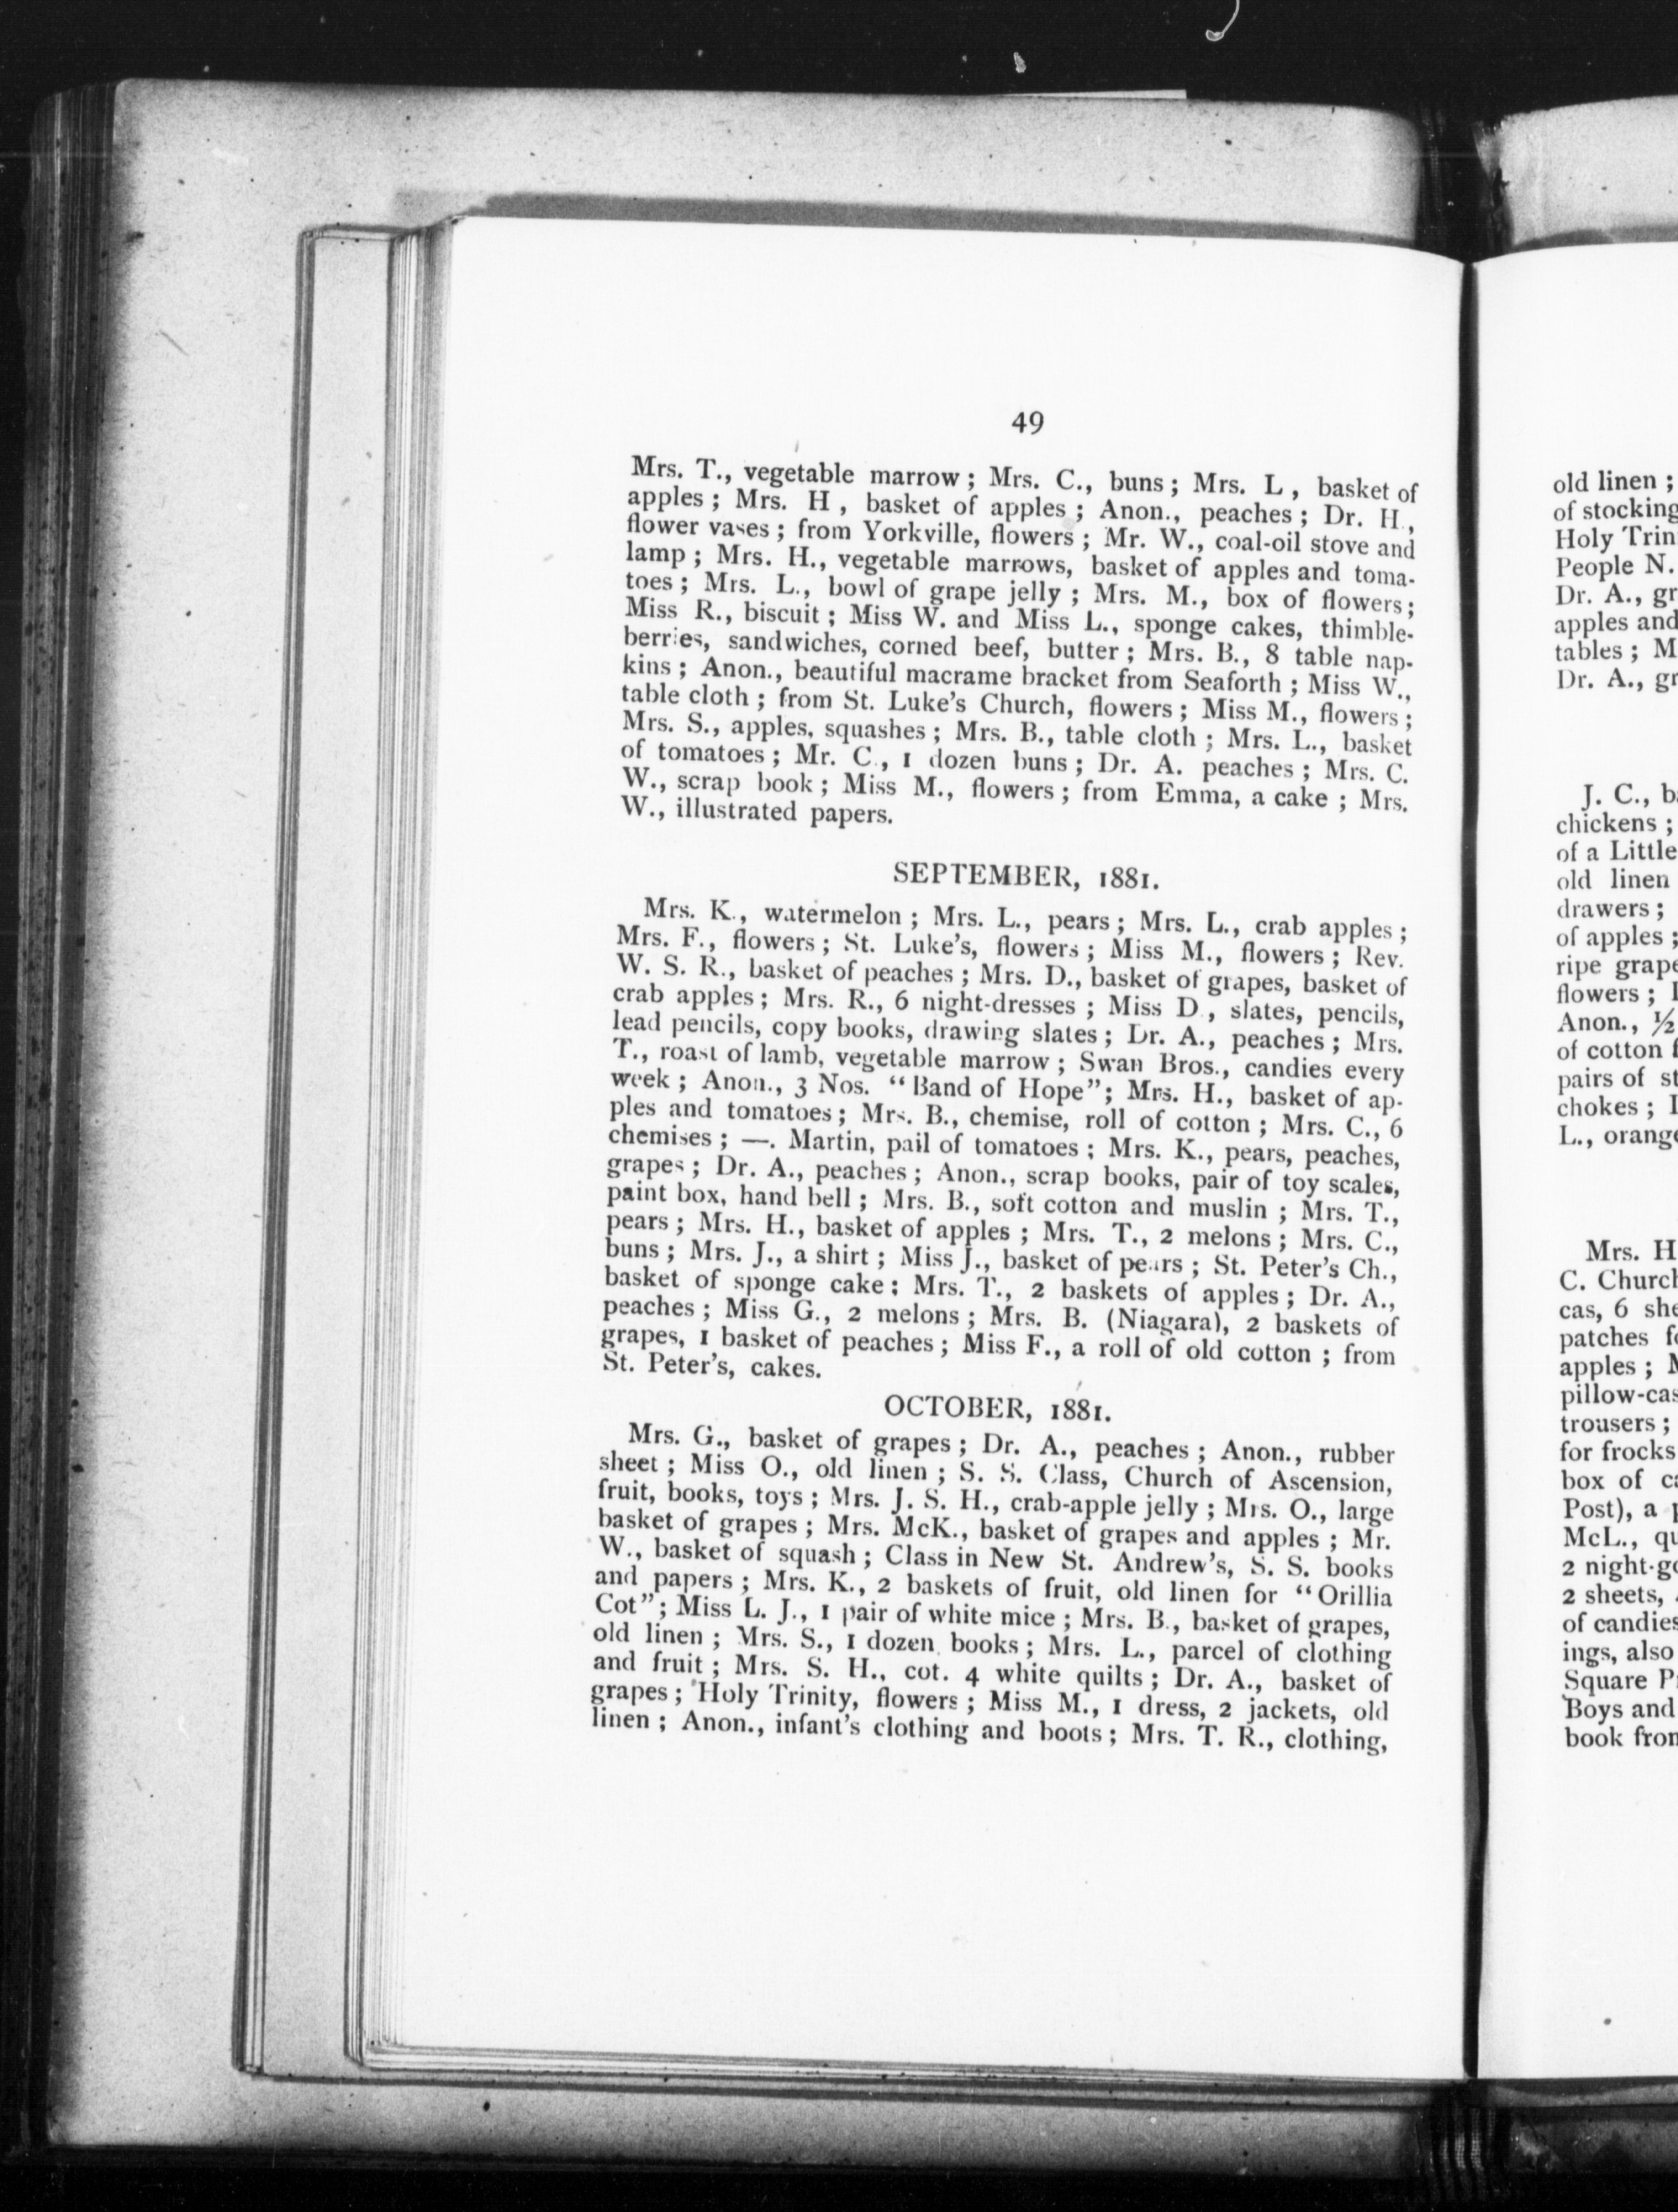 49
Mrs. T., vegetable marrow ; Mrs. C., buns ; Mrs. L , basket of
apples ; Mrs. H , basket of apples ; Anon., peaches ; Dr. H.,
flower vases ; from Yorkville, flowers ; Mr. W., coal-oil stove and
lamp ; Mrs. H., vegetable marrows, basket of apples and toma-
toes ; Mrs. L., bowl of grape jelly ; Mrs. M., box of flowers ;
Miss R., biscuit ; Miss W. and Miss L., sponge cakes, thimble-
berries, sandwiches, corned beef, butter ; Mrs. B., 8 table nap-
kins ; Anon., beautiful macrame bracket from Seaforth ; Miss W.,
table cloth ; from St. Luke's Church, flowers ; Miss M., flowers ;
Mrs. S., apples, squashes ; Mrs. B., table cloth ; Mrs. L., basket
of tomatoes ; Mr. C., 1 dozen buns ; Dr. A. peaches ; Mrs. C.
W., scrap book ; Miss M., flowers ; from Emma, a cake ; Mrs.
W., illustrated papers.
SEPTEMBER, 1881.
Mrs. K., watermelon ; Mrs. L., pears ; Mrs. L., crab apples ;
Mrs. F., flowers ; St. Luke's, flowers ; Miss M., flowers ; Rev.
W. S. R., basket of peaches ; Mrs. D., basket of grapes, basket of
crab apples ; Mrs. R., 6 night-dresses ; Miss D., slates, pencils,
lead pencils, copy books, drawing slates ; Dr. A., peaches ; Mrs.
T., roast of lamb, vegetable marrow ; Swan Bros., candies every
week ; Anon., 3 Nos. "Band of Hope"; Mrs. H., basket of ap-
ples and tomatoes ; Mrs. B., chemise, roll of cotton ; Mrs. C., 6
chemises ; —. Martin, pail of tomatoes ; Mrs. K., pears, peaches,
grapes ; Dr. A., peaches ; Anon., scrap books, pair of toy scales,
paint box, hand bell ; Mrs. B., soft cotton and muslin ; Mrs. T.,
pears ; Mrs. H., basket of apples ; Mrs. T., 2 melons ; Mrs. C.,
buns ; Mrs. J., a shirt ; Miss J., basket of pears ; St. Peter's Ch.,
basket of sponge cake ; Mrs. T., 2 baskets of apples ; Dr. A.,
peaches ; Miss G., 2 melons ; Mrs. B. (Niagara), 2 baskets of
grapes, 1 basket of peaches ; Miss F., a roll of old cotton ; from
St. Peter's, cakes.
OCTOBER, 1881.
Mrs. G., basket of grapes ; Dr. A., peaches ; Anon., rubber
sheet ; Miss O., old linen ; S. S. Class, Church of Ascension,
fruit, books, toys ; Mrs. J. S. H., crab-apple jelly ; Mrs. O., large
basket of grapes ; Mrs. McK., basket of grapes and apples ; Mr.
W., basket of squash ; Class in New St. Andrew's, S. S. books
and papers ; Mrs. K., 2 baskets of fruit, old linen for "Orillia
Cot"; Miss L. J., 1 pair of white mice ; Mrs. B., basket of grapes,
old linen ; Mrs. S., 1 dozen books ; Mrs. L., parcel of clothing
and fruit ; Mrs. S. H., cot. 4 white quilts ; Dr. A., basket of
grapes ; Holy Trinity, flowers ; Miss M., 1 dress, 2 jackets, old
linen ; Anon., infant's clothing and boots ; Mrs. T. R., clothing,
old linen ;
of stocking
Holy Trin
People N.
Dr. A., gr
apples and
tables ; M
Dr. A., gr
J. C., b
chickens ;
of a Little
old linen
drawers ;
of apples ;
ripe grape
flowers ;
Anon., ½
of cotton f
pairs of st
chokes ;
L., orange
Mrs. H
C. Church
cas, 6 she
patches f
apples ; M
pillow-cas
trousers ;
for frocks
box of ca
Post), a p
McL., qu
2 night-go
2 sheets,
of candies
ings, also
Square P
Boys and
book from